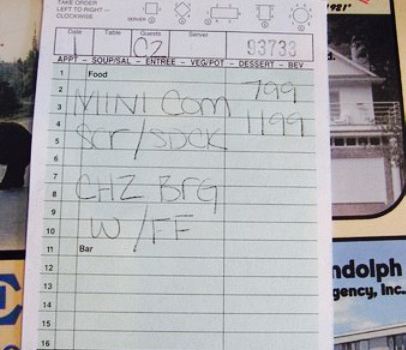 TAKE ORDER
LEFT TO RIGHT –
CLOCKWISE
SERVER
Date Table Guests Server
93733
APPT – SOUP/SAL – ENTREE – VEG/POT – DESSERT – BEV
1 Food
2 MINI COM 799
3
4 SCR/SDCK 1199
5
6
7 CHZ BRG
8
9 W/FF
10
11 Bar
12
13
14
15
16
1921'
d.
ndolph
gency, Inc.